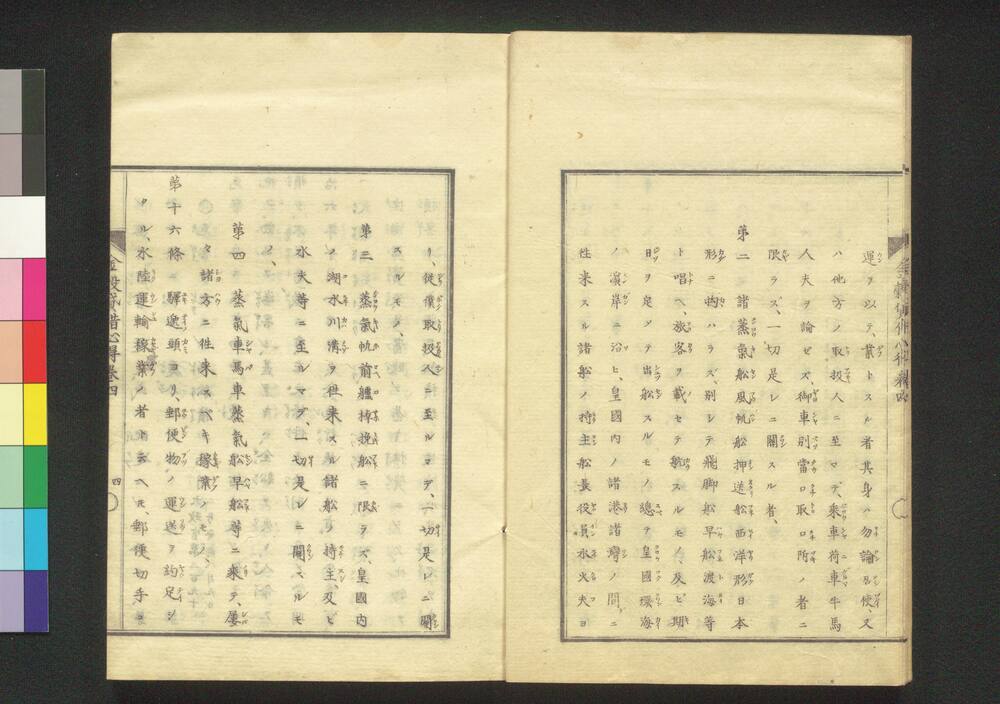 運ヲ以テ、業トスル者其身ハ勿論召使、又
ハ他方ノ取扱人ニ至ルマデ、乘車荷車牛馬
人夫ヲ論ゼズ、御車別當口取口所ノ者ニ
限ラズ、一切是レニ關スル者、
第二 諸蒸氣船風帆船押送船西洋形日本
形ニ拘ハラズ、別シテ飛脚船早船渡海等
ト唱ヘ、旅客ヲ載セテ航スルモノ、及ビ期
日ヲ定メテ出船スルモノ、總テ皇國環海
ノ濱岸ニ沿ヒ、皇國内ノ諸港諸灣ノ間ニ
往来スル諸船ノ持主船長役員水火夫ヨ
リ、從僕取扱人ニ至ルマデ、一切是レニ關
スルモノ、
第三 蒸氣帆前艫棹挽船ニ限ラズ、皇國内
ノ湖水川溝ヲ往来スル諸船ノ持主、及ビ
水夫等ニ至ルマデ、一切是レニ關スルモ
ノ、
第四 蒸氣車馬車蒸氣船早船等ニ乘テ、屡
々諸方ニ往来スベキ稼業ノモノ、
第十六條 驛逓頭ヨリ、郵便物ノ運送ヲ約定シ
タル、水陸運輸稼業ノ者ト云ヘモ、郵便切手ヲ
金穀貸借心得卷四
四